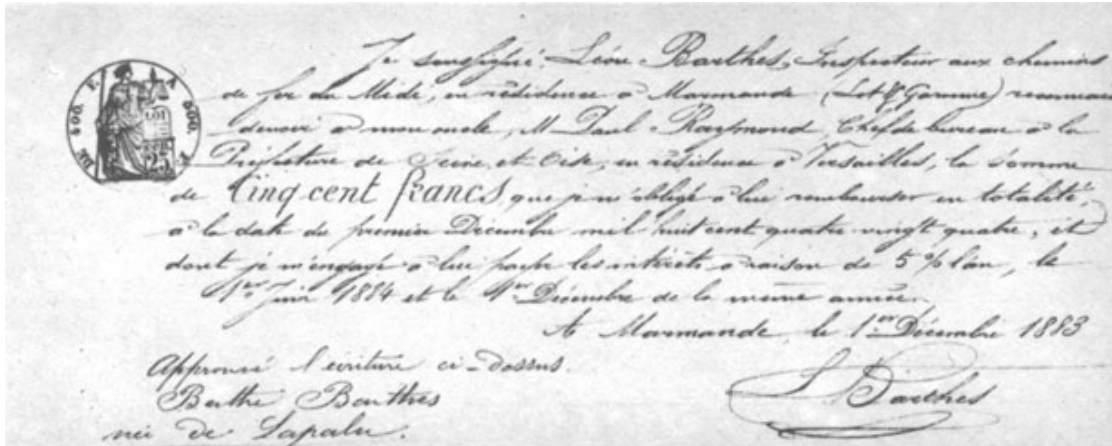 Je soussigné Léon Barthes, Inspecteur aux chemins
de fer du Midi, en résidence à Marmande (Lot & Garonne) reconnais
devoir à mon oncle, M. Paul Raymond, Chef de bureau à la
Préfecture de Seine et Oise, en résidence à Versailles, la somme
de Cinq cent francs, que je m'oblige à lui rembourser en totalité,
à la date du premier Décembre mil huit cent quatre vingt quatre, et
dont je m'engage à lui payer les intérêts, à raison de 5 % l'an, le
1er Juin 1884 et le 1er Décembre de la même année.
A Marmande, le 1er Décembre 1883
Approuvé l'écriture ci-dessus.
Berthe Barthes
née de Lapalu.
L Barthes
500. F. A 500.
LOI
25